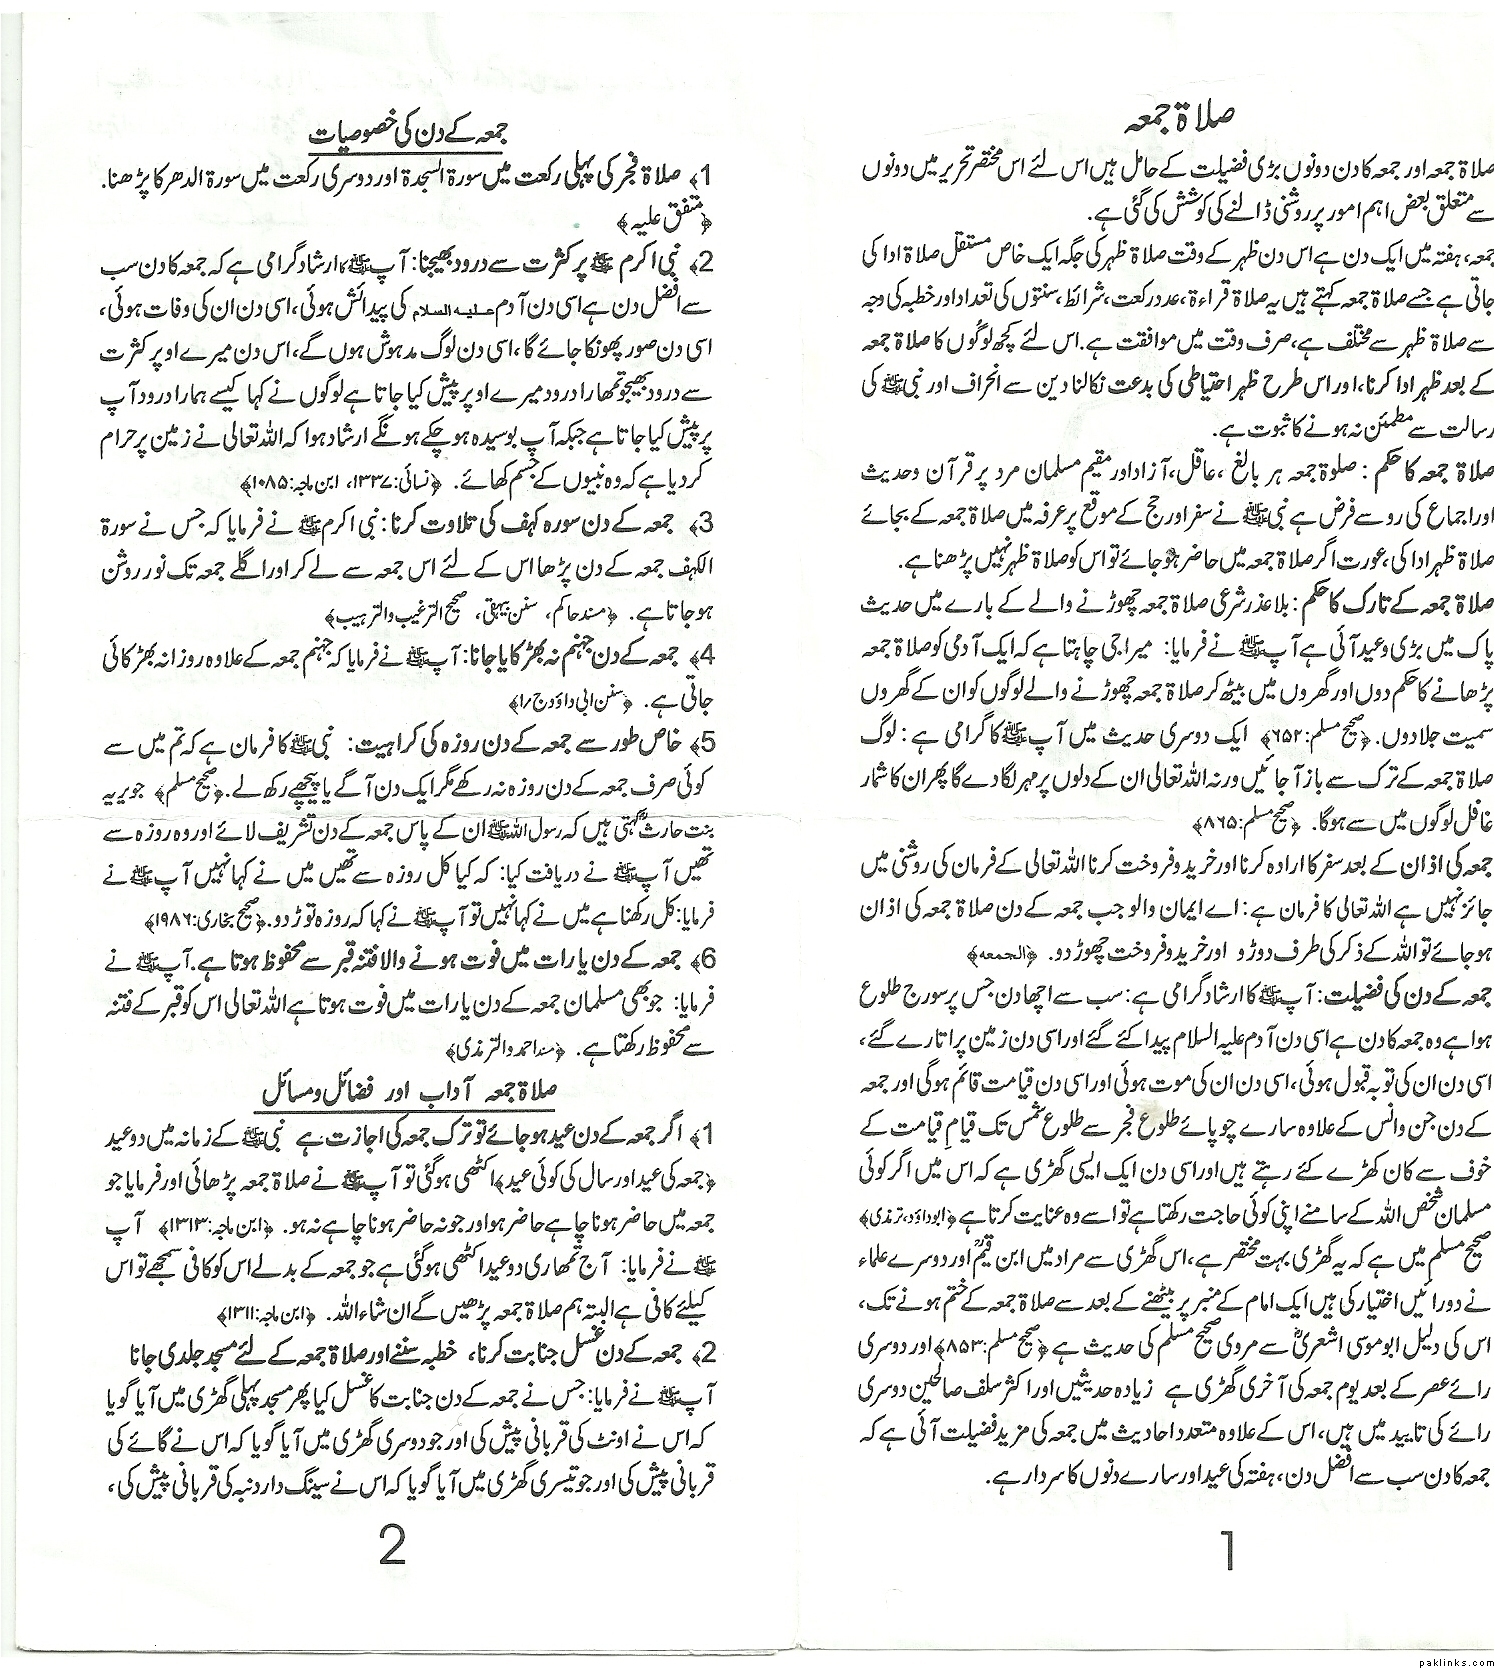 صلاۃ جمعہ
صلاۃ جمعہ اور جمعہ کا دن دونوں بڑی فضیلت کے حامل ہیں اس لئے اس مختصر تحریر میں دونوں
سے متعلق بعض اہم امور پر روشنی ڈالنے کی کوشش کی گئی ہے.
جمعہ، ہفتہ میں ایک دن ہے اس دن ظہر کے وقت صلاۃ ظہر کی جگہ ایک خاص مستقل صلاۃ ادا کی
جاتی ہے جسے صلاۃ جمعہ کہتے ہیں یہ صلاۃ قراءۃ، عدد رکعت، شرائط، سنتوں کی تعداد اور خطبہ کی وجہ
سے صلاۃ ظہر سے مختلف ہے، صرف وقت میں موافقت ہے. اس لئے کچھ لوگوں کا صلاۃ جمعہ
کے بعد ظہر ادا کرنا، اور اس طرح ظہر احتیاطی کی بدعت نکالنا دین سے انحراف اور نبی ﷺ کی
رسالت سے مطمئن نہ ہونے کا ثبوت ہے.
صلاۃ جمعہ کا حکم : صلوۃ جمعہ ہر بالغ، عاقل، آزاد اور مقیم مسلمان مرد پر قرآن وحدیث
اور اجماع کی رو سے فرض ہے نبی ﷺ نے سفر اور حج کے موقع پر عرفہ میں صلاۃ جمعہ کے بجائے
صلاۃ ظہر ادا کی، عورت اگر صلاۃ جمعہ میں حاضر ہو جائے تو اس کو صلاۃ ظہر نہیں پڑھنا ہے.
صلاۃ جمعہ کے تارک کا حکم : بلا عذر شرعی صلاۃ جمعہ چھوڑنے والے کے بارے میں حدیث
پاک میں بڑی وعید آئی ہے آپ ﷺ نے فرمایا: میرا جی چاہتا ہے کہ ایک آدمی کو صلاۃ جمعہ
پڑھانے کا حکم دوں اور گھروں میں بیٹھ کر صلاۃ جمعہ چھوڑنے والے لوگوں کو ان کے گھروں
سمیت جلا دوں. ﴿صحیح مسلم: ۶۵۲﴾ ایک دوسری حدیث میں آپ ﷺ کا گرامی ہے : لوگ
صلاۃ جمعہ کے ترک سے باز آ جائیں ورنہ اللہ تعالی ان کے دلوں پر مہر لگا دے گا پھر ان کا شمار
غافل لوگوں میں سے ہوگا. ﴿صحیح مسلم: ۸۶۵﴾
جمعہ کی اذان کے بعد سفر کا ارادہ کرنا اور خرید و فروخت کرنا اللہ تعالی کے فرمان کی روشنی میں
جائز نہیں ہے اللہ تعالی کا فرمان ہے : اے ایمان والو جب جمعہ کے دن صلاۃ جمعہ کی اذان
ہو جائے تو اللہ کے ذکر کی طرف دوڑو اور خرید و فروخت چھوڑ دو. ﴿الجمعہ﴾
جمعہ کے دن کی فضیلت: آپ ﷺ کا ارشاد گرامی ہے : سب سے اچھا دن جس پر سورج طلوع
ہوا ہے وہ جمعہ کا دن ہے اسی دن آدم علیہ السلام پیدا کئے گئے اور اسی دن زمین پر اتارے گئے،
اسی دن ان کی توبہ قبول ہوئی، اسی دن ان کی موت ہوئی اور اسی دن قیامت قائم ہوگی اور جمعہ
کے دن جن وانس کے علاوہ سارے چوپائے طلوع فجر سے طلوع شمس تک قیامِ قیامت کے
خوف سے کان کھڑے کئے رہتے ہیں اور اسی دن ایک ایسی گھڑی ہے کہ اس میں اگر کوئی
مسلمان شخص اللہ کے سامنے اپنی کوئی حاجت رکھتا ہے تو اسے وہ عنایت کرتا ہے ﴿ابوداؤد، ترمذی﴾
صحیح مسلم میں ہے کہ یہ گھڑی بہت مختصر ہے، اس گھڑی سے مراد میں ابن قیمؒ اور دوسرے علماء
نے دو رائیں اختیار کی ہیں ایک امام کے منبر پر بیٹھنے کے بعد سے صلاۃ جمعہ کے ختم ہونے تک،
اس کی دلیل ابوموسی اشعریؓ سے مروی صحیح مسلم کی حدیث ہے ﴿صحیح مسلم: ۸۵۳﴾ اور دوسری
رائے عصر کے بعد یوم جمعہ کی آخری گھڑی ہے زیادہ حدیثیں اور اکثر سلف صالحین دوسری
رائے کی تایید میں ہیں، اس کے علاوہ متعدد احادیث میں جمعہ کی مزید فضیلت آئی ہے کہ
جمعہ کا دن سب سے افضل دن، ہفتہ کی عید اور سارے دنوں کا سردار ہے.
1
جمعہ کے دن کی خصوصیات
1﴾ صلاۃ فجر کی پہلی رکعت میں سورۃ السجدۃ اور دوسری رکعت میں سورۃ الدھر کا پڑھنا.
﴿متفق علیہ﴾
2﴾ نبی اکرم ﷺ پر کثرت سے درود بھیجنا : آپ ﷺ کا ارشاد گرامی ہے کہ جمعہ کا دن سب
سے افضل دن ہے اسی دن آدم علیہ السلام کی پیدائش ہوئی، اسی دن ان کی وفات ہوئی،
اسی دن صور پھونکا جائے گا، اسی دن لوگ مدہوش ہوں گے، اس دن میرے اوپر کثرت
سے درود بھیجو تمھارا درود میرے اوپر پیش کیا جاتا ہے لوگوں نے کہا کیسے ہمارا درود آپ
پر پیش کیا جاتا ہے جبکہ آپ بوسیدہ ہو چکے ہونگے ارشاد ہوا کہ اللہ تعالی نے زمین پر حرام
کر دیا ہے کہ وہ نبیوں کے جسم کھائے. ﴿نسائی: ۱۳۳۷، ابن ماجہ: ۱۰۸۵﴾
3﴾ جمعہ کے دن سورہ کہف کی تلاوت کرنا : نبی اکرم ﷺ نے فرمایا کہ جس نے سورۃ
الکہف جمعہ کے دن پڑھا اس کے لئے اس جمعہ سے لے کر اور اگلے جمعہ تک نور روشن
ہو جاتا ہے. ﴿مسند حاکم، سنن بیہقی، صحیح الترغیب والترہیب﴾
4﴾ جمعہ کے دن جہنم نہ بھڑکایا جانا : آپ ﷺ نے فرمایا کہ جہنم جمعہ کے علاوہ روزانہ بھڑکائی
جاتی ہے. ﴿سنن ابی داؤد ج/۱﴾
5﴾ خاص طور سے جمعہ کے دن روزہ کی کراہیت: نبی ﷺ کا فرمان ہے کہ تم میں سے
کوئی صرف جمعہ کے دن روزہ نہ رکھے مگر ایک دن آگے یا پیچھے رکھ لے. ﴿صحیح مسلم﴾ جویریہ
بنت حارثؓ کہتی ہیں کہ رسول اللہ ﷺ ان کے پاس جمعہ کے دن تشریف لائے اور وہ روزہ سے
تھیں آپ ﷺ نے دریافت کیا: کہ کیا کل روزہ سے تھیں میں نے کہا نہیں آپ ﷺ نے
فرمایا: کل رکھنا ہے میں نے کہا نہیں تو آپ ﷺ نے کہا کہ روزہ توڑ دو. ﴿صحیح بخاری: ۱۹۸۶﴾
6﴾ جمعہ کے دن یا رات میں فوت ہونے والا فتنہ قبر سے محفوظ ہوتا ہے. آپ ﷺ نے
فرمایا: جو بھی مسلمان جمعہ کے دن یا رات میں فوت ہوتا ہے اللہ تعالی اس کو قبر کے فتنہ
سے محفوظ رکھتا ہے. ﴿مسند احمد والترمذی﴾
صلاۃ جمعہ آداب اور فضائل ومسائل
1﴾ اگر جمعہ کے دن عید ہو جائے تو ترک جمعہ کی اجازت ہے نبی ﷺ کے زمانہ میں دو عید
﴿جمعہ کی عید اور سال کی کوئی عید﴾ اکٹھی ہو گئی تو آپ ﷺ نے صلاۃ جمعہ پڑھائی اور فرمایا جو
جمعہ میں حاضر ہونا چاہے حاضر ہو اور جو نہ حاضر ہونا چاہے نہ ہو. ﴿ابن ماجہ: ۱۳۱۳﴾ آپ
ﷺ نے فرمایا: آج تمھاری دو عید اکٹھی ہو گئی ہے جو جمعہ کے بدلے اس کو کافی سمجھے تو اس
کیلئے کافی ہے البتہ ہم صلاۃ جمعہ پڑھیں گے ان شاء اللہ. ﴿ابن ماجہ: ۱۳۱۱﴾
2﴾ جمعہ کے دن غسل جنابت کرنا، خطبہ سننے اور صلاۃ جمعہ کے لئے مسجد جلدی جانا
آپ ﷺ نے فرمایا: جس نے جمعہ کے دن جنابت کا غسل کیا پھر مسجد پہلی گھڑی میں آیا گویا
کہ اس نے اونٹ کی قربانی پیش کی اور جو دوسری گھڑی میں آیا گویا کہ اس نے گائے کی
قربانی پیش کی اور جو تیسری گھڑی میں آیا گویا کہ اس نے سینگ دار دنبہ کی قربانی پیش کی،
2
paklinks.com